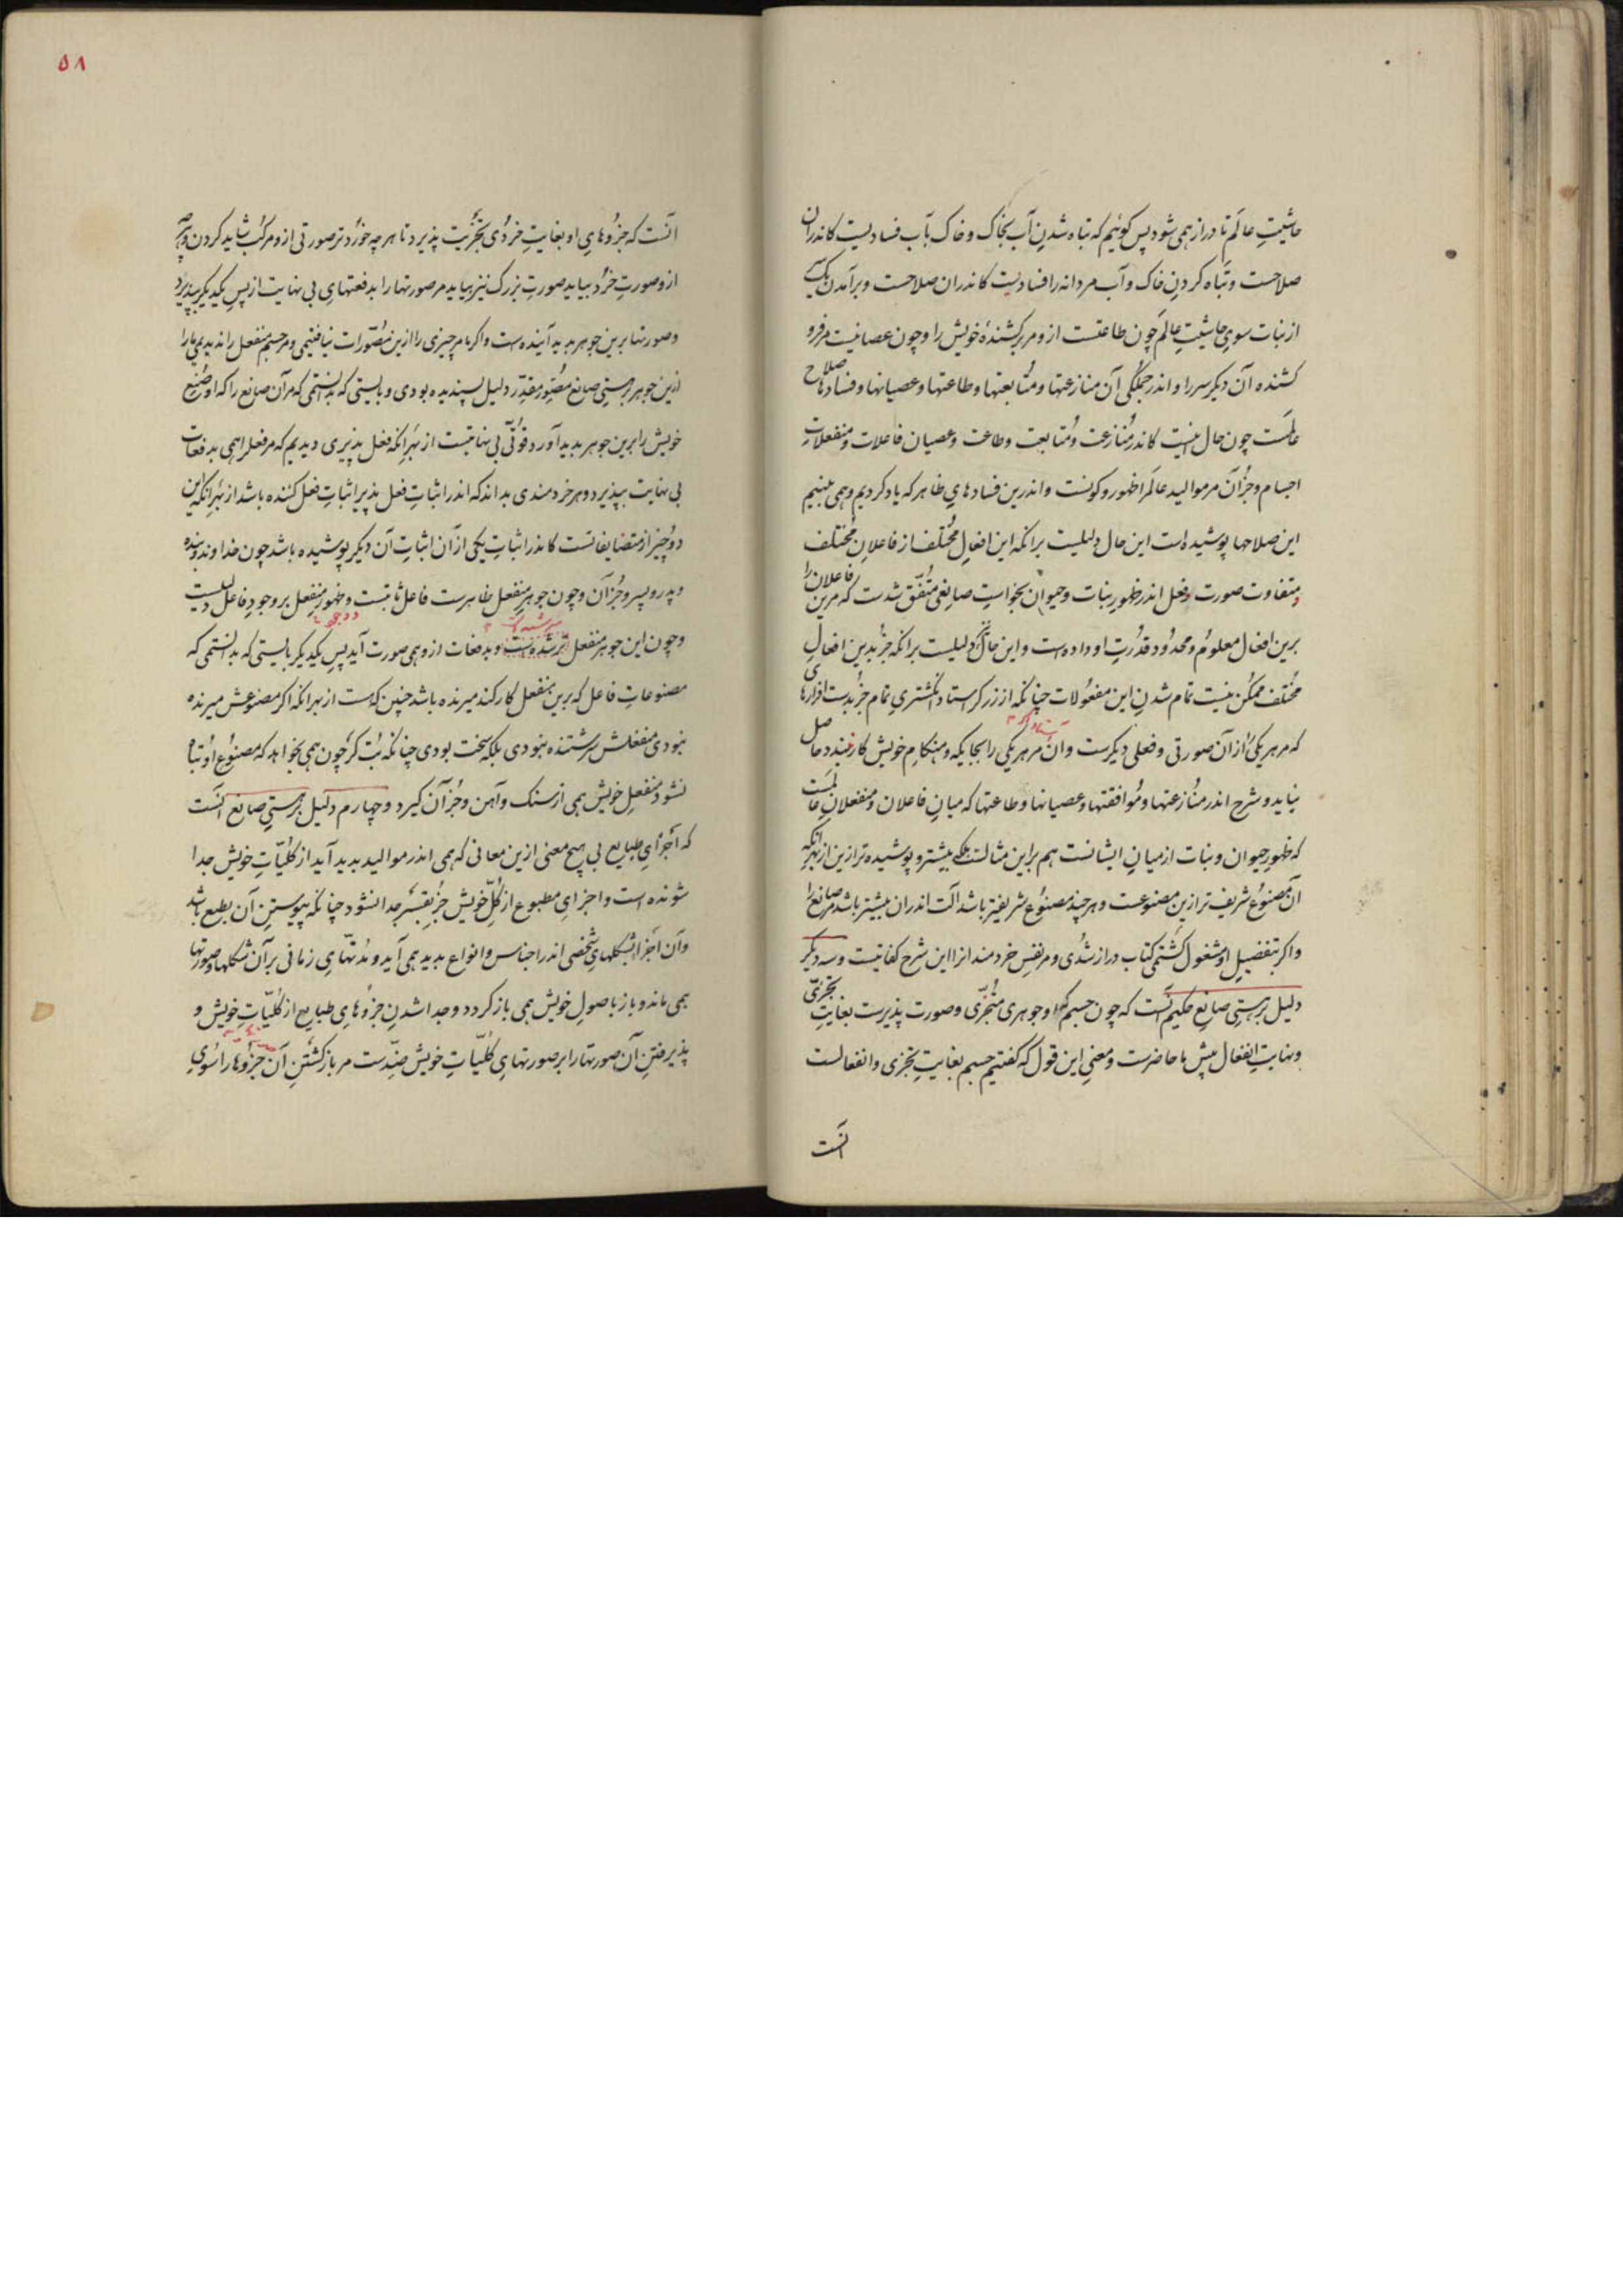 حاشیتِ عالَم تا دراز همی شود پس کوئیم که تباه شدنِ آب بخاک و خاک بآب فسادیست کاندران
صلاحست و تباه کردنِ خاک و آب مر دانه را فسادیست کاندران صلاحست و برآمدن یک سر
از نبات سویِ حاشیتِ عالَم چون طاعتست ازو مر برکشندهٔ خویش را و چون عصیانیست مر فرو
کشنده آن دیکر سر را و اندر جملکی آن منازعتها و مُتابعتها و طاعتها و عصیانها و فسادها صلاح
عالمَست چون حال اینست کاندر مُنازعت و مُتابعت و طاعت و عصیان فاعلات و منفعلات
اجسام و جُز آن مر موالید عالَم را ظهور و کونست و اندرین فسادهایِ ظاهر که یاد کردیم و همی بینیم
این صلاحها پوشیده است این حال دلیلیست برانکه این افعالِ مُختلف از فاعلانِ مُختلف
متفاوت صورت و فعل اندر ظهورِ نبات و حیوان بخواستِ صانعی مُتّفق شدست که مرین فاعلان را
برین افعال معلوُم و محدُود قدُرتِ او داده است و این حال دلیلیست برانکه جُز بدین افعالِ
مُختلف ممکُن نیست تمام شدنِ این مفعُولات چنانکه از زرکر استاد انکشتریِ تمام جُز بدست افزارها
که مر هر یکیٔ را از آن صورتی و فعلی دیکرست و آن مر هر یکی را بجایکه و هنکامِ خویش کار بندد حاصل
نیاید و شرح اندر مُنازعتها و مُوافقتها و عصیانها و طاعتها که میانِ فاعلان و منفعلانِ عالمست
که ظهورِ حیوان و نبات از میانِ ایشانست هم براین مثالست بلکه بیشتر و پوشیده تر ازین از بهر آنکه
آن مصنوُع شریف تر ازین مصنوعست و هر چند مصنوُع شریفتر باشد آلت اندران بیشتر باشد مر صانع را
و اکر بتفضیلِ او مشغول کشتمی کتاب دراز شدی و مر نفسِ خردمندانرا این شرح کفایتیست و سه دیکر
دلیل بر هستیِ صانع حکیم آنست که چون جسم که او جوهری مُتجزّی و صورت پذیرست بغایتِ تجزّی
و نهایتِ انفعال پیش ما حاضرست و معنیِ این قول که کفتیم جسم بغایتِ تجزی و انفعالست
آنست
۵۸
آنست که جزوُهایِ او بغایتِ خُردی تجزیت پذیرد تا هر چه خوُرد تر صورتی ازو مرکّب شاید کردن و هر چه
ازو صورتِ خُرد بیاید صورتِ بزرک نیز بیاید مر صورتها را بدفعتهایِ بی نهایت از پسِ یکدیکر بپذیرد
و صورتها برین جوهر پدید آینده است و اکر ما مر چیزی را ازین مُصوّرات نیافتیمی و مر جسم منفعل را ندیدیمی ما را
ازین جوهر بر هستیِ صانع مُصوّرِ مقدّر دلیل پسندیده بودی و بایستی که بدانستمی که مر آن صانع را که او صُنعِ
خویش را برین جوهر پدید آورد قوُتّی بی نهایتست از بهر آنکه فعل پذیری دیدیم که مر فعل را همی بدفعات
بی نهایت بپذیرد و هر خردمندی بداند که اندر اثباتِ فعل پذیر اثباتِ فعل کننده باشد از بهر آنکه این
دو چیز از متضایفانست کاندر اثباتِ یکی از آن اثباتِ آن دیکر پوشیده باشد چون خداوند و بنده
و پدر و پسر و جُز آن و چون جوهرِ منفعل ظاهرست فاعل ثابتست و ظهورِ منفعل بر وجودِ فاعل دلیلست
و چون این جوهر منفعل سرشته است و بدفعات ازو همی صورت آید پسِ یکدیکر بایستی که بدانستمی که
مصنوعاتِ فاعل که برین منفعل کار کند میرنده باشد چنین که هست از بهر آنکه اکر مصنوعش میرنده
نبودی منفعلش سرشتنده نبودی بلکه سخت بودی چنانکه بُت کر چون همی بخواهد که مصنوُعِ او تباه
نشود منفعلِ خویش همی از سنک و آهن و جُز آن کیرد و چهارم دلیل بر هستیِ صانع آنست
که اجزایِ طبایع بی هیچ معنی ازین معانی که همی اندر موالید پدید آید از کلیّاتِ خویش جدا
شونده است و اجزایِ مطبوع از کُلِّ خویش جُز بقسر جدا نشود چنانکه پیوستنِ آن بطبع باشد
و آن اجزا بشکلهایِ شخصی اندر اجناس و انواع پدید همی آید و مُدّتهایِ زمانی بر آن شکلها و صورتها
همی ماند و باز باصولِ خویش همی باز کردد و جدا شدنِ جزوُهایِ طبایع از کُلیّاتِ خویش و
پذیرفتنِ آن صورتها را بر صورتهایِ کُلیّاتِ خویش ضدّست مر باز کشتنِ آن جزوُها را سویِ